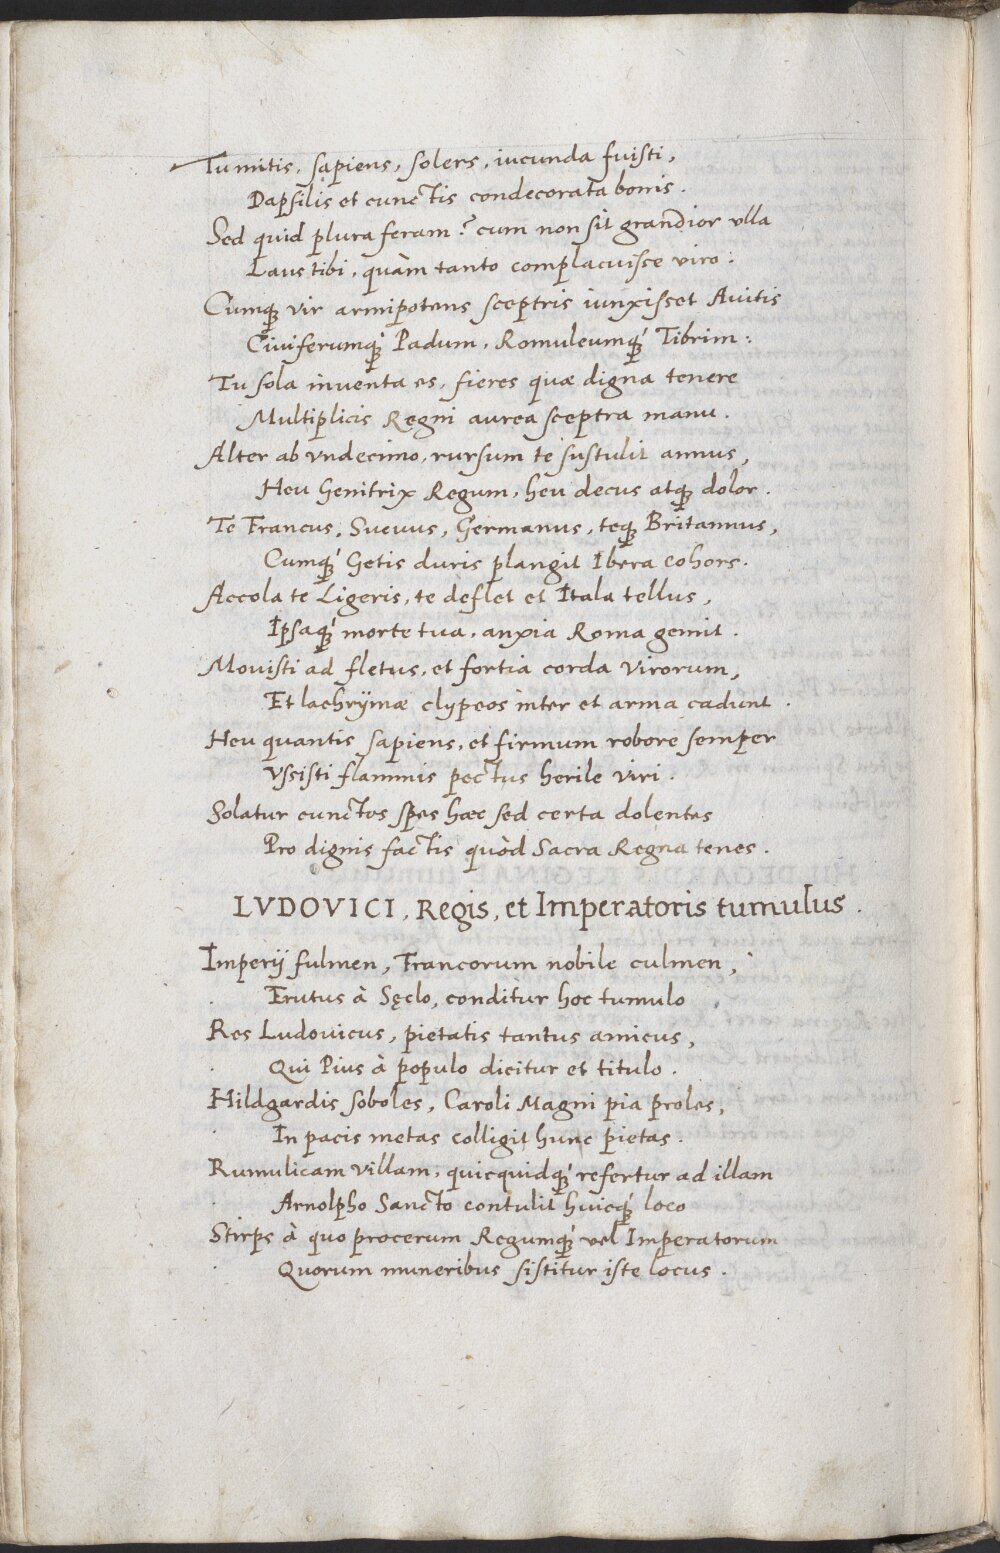 Tu mitis, sapiens, solers, iucunda fuisti,
Dapsilis et cunctis condecorata bonis.
Sed quid plura feram? cum non sit grandior vlla
Laus tibi, quàm tanto complacuisse viro:
Cumq́ue vir armipotens sceptris iunxisset Auitis
Ciuiferumq́ue Padum, Romuleumq́ue Tibrim:
Tu sola inventa es, fieres quæ digna tenere
Multiplicis Regni aurea sceptra manu.
Alter ab vndecimo, rursum te sustulit annus,
Heu Genitrix Regum, heu decus atq́ue dolor.
Te Francus, Suevus, Germanus, teq́ue Britannus,
Cumq́ue Getis duris plangit Ibera cohors.
Accola te Ligeris, te deflet et Itala tellus,
Ipsaq́ue morte tua, anxia Roma gemit.
Mouisti ad fletus, et fortia corda virorum,
Et lachrÿmæ clypeos inter et arma cadunt.
Heu quantis sapiens, et firmum robore semper
Vssisti flammis pectus herile viri.
Solatur cunctos spes hæc sed certa dolentes
Pro dignis factis quòd Sacra Regna tenes.
LVDOVICI, Regis, et Imperatoris tumulus.
Imperÿ fulmen, Francorum nobile culmen,
Erutus à Sęclo, conditur hoc tumulo
Res Ludovicus, pietatis tantus amicus,
Qui Pius à populo dicitur et titulo.
Hildgardis soboles, Caroli Magni pia proles,
In pacis metas colligit hunc pietas.
Rumulicam villam, quicquidq́ue refertur ad illam
Arnolpho Sancto contulit huicq́ue loco
Stirps à quo procerum Regumq́ue vel Imperatorum
Quorum muneribus sistitur iste locus.